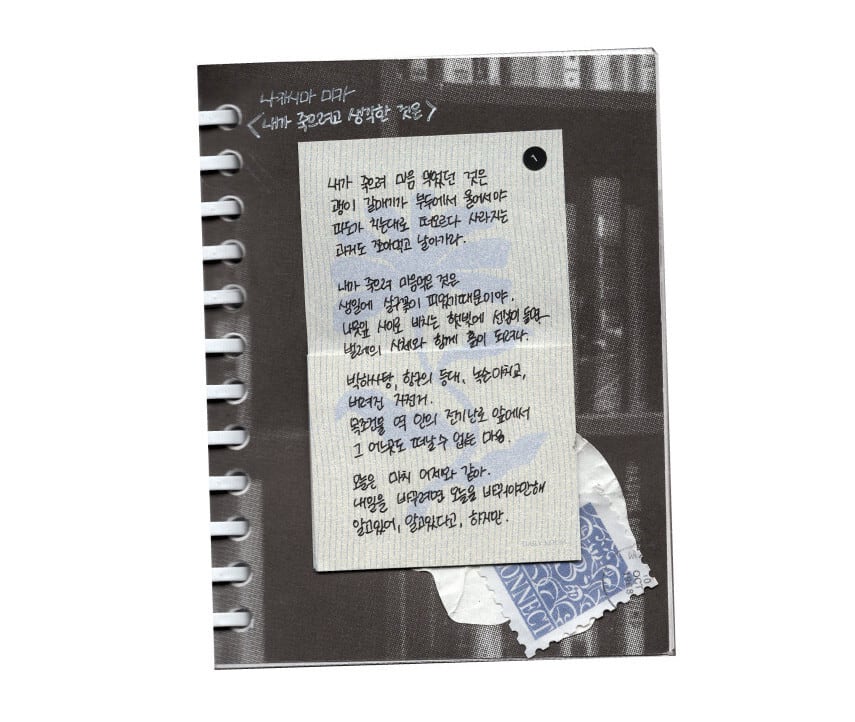 나카시마 미카
<내가 죽으려고 생각한 것은>
1
내가 죽으려 마음 먹었던 것은
괭이 갈매기가 부두에서 울어서야
파도가 치는대로 떠오르다 사라지는
과거도 쪼아먹고 날아가라.
내가 죽으려 마음먹은 것은
생일에 살구꽃이 피었기때문이야.
나뭇잎 사이로 비치는 햇빛에 선잠이 들면
벌레의 사체와 함께 흙이 되려나.
박하사탕, 항구의 등대, 녹슨아치교,
버려진 자전거.
목조건물 역 안의 전기난로 앞에서
그 어느곳도 떠날 수 없는 마음.
오늘은 마치 어제와 같아.
내일을 바꾸려면 오늘을 바꿔야만해
알고있어, 알고있다고, 하지만.
CONNECT
OCT